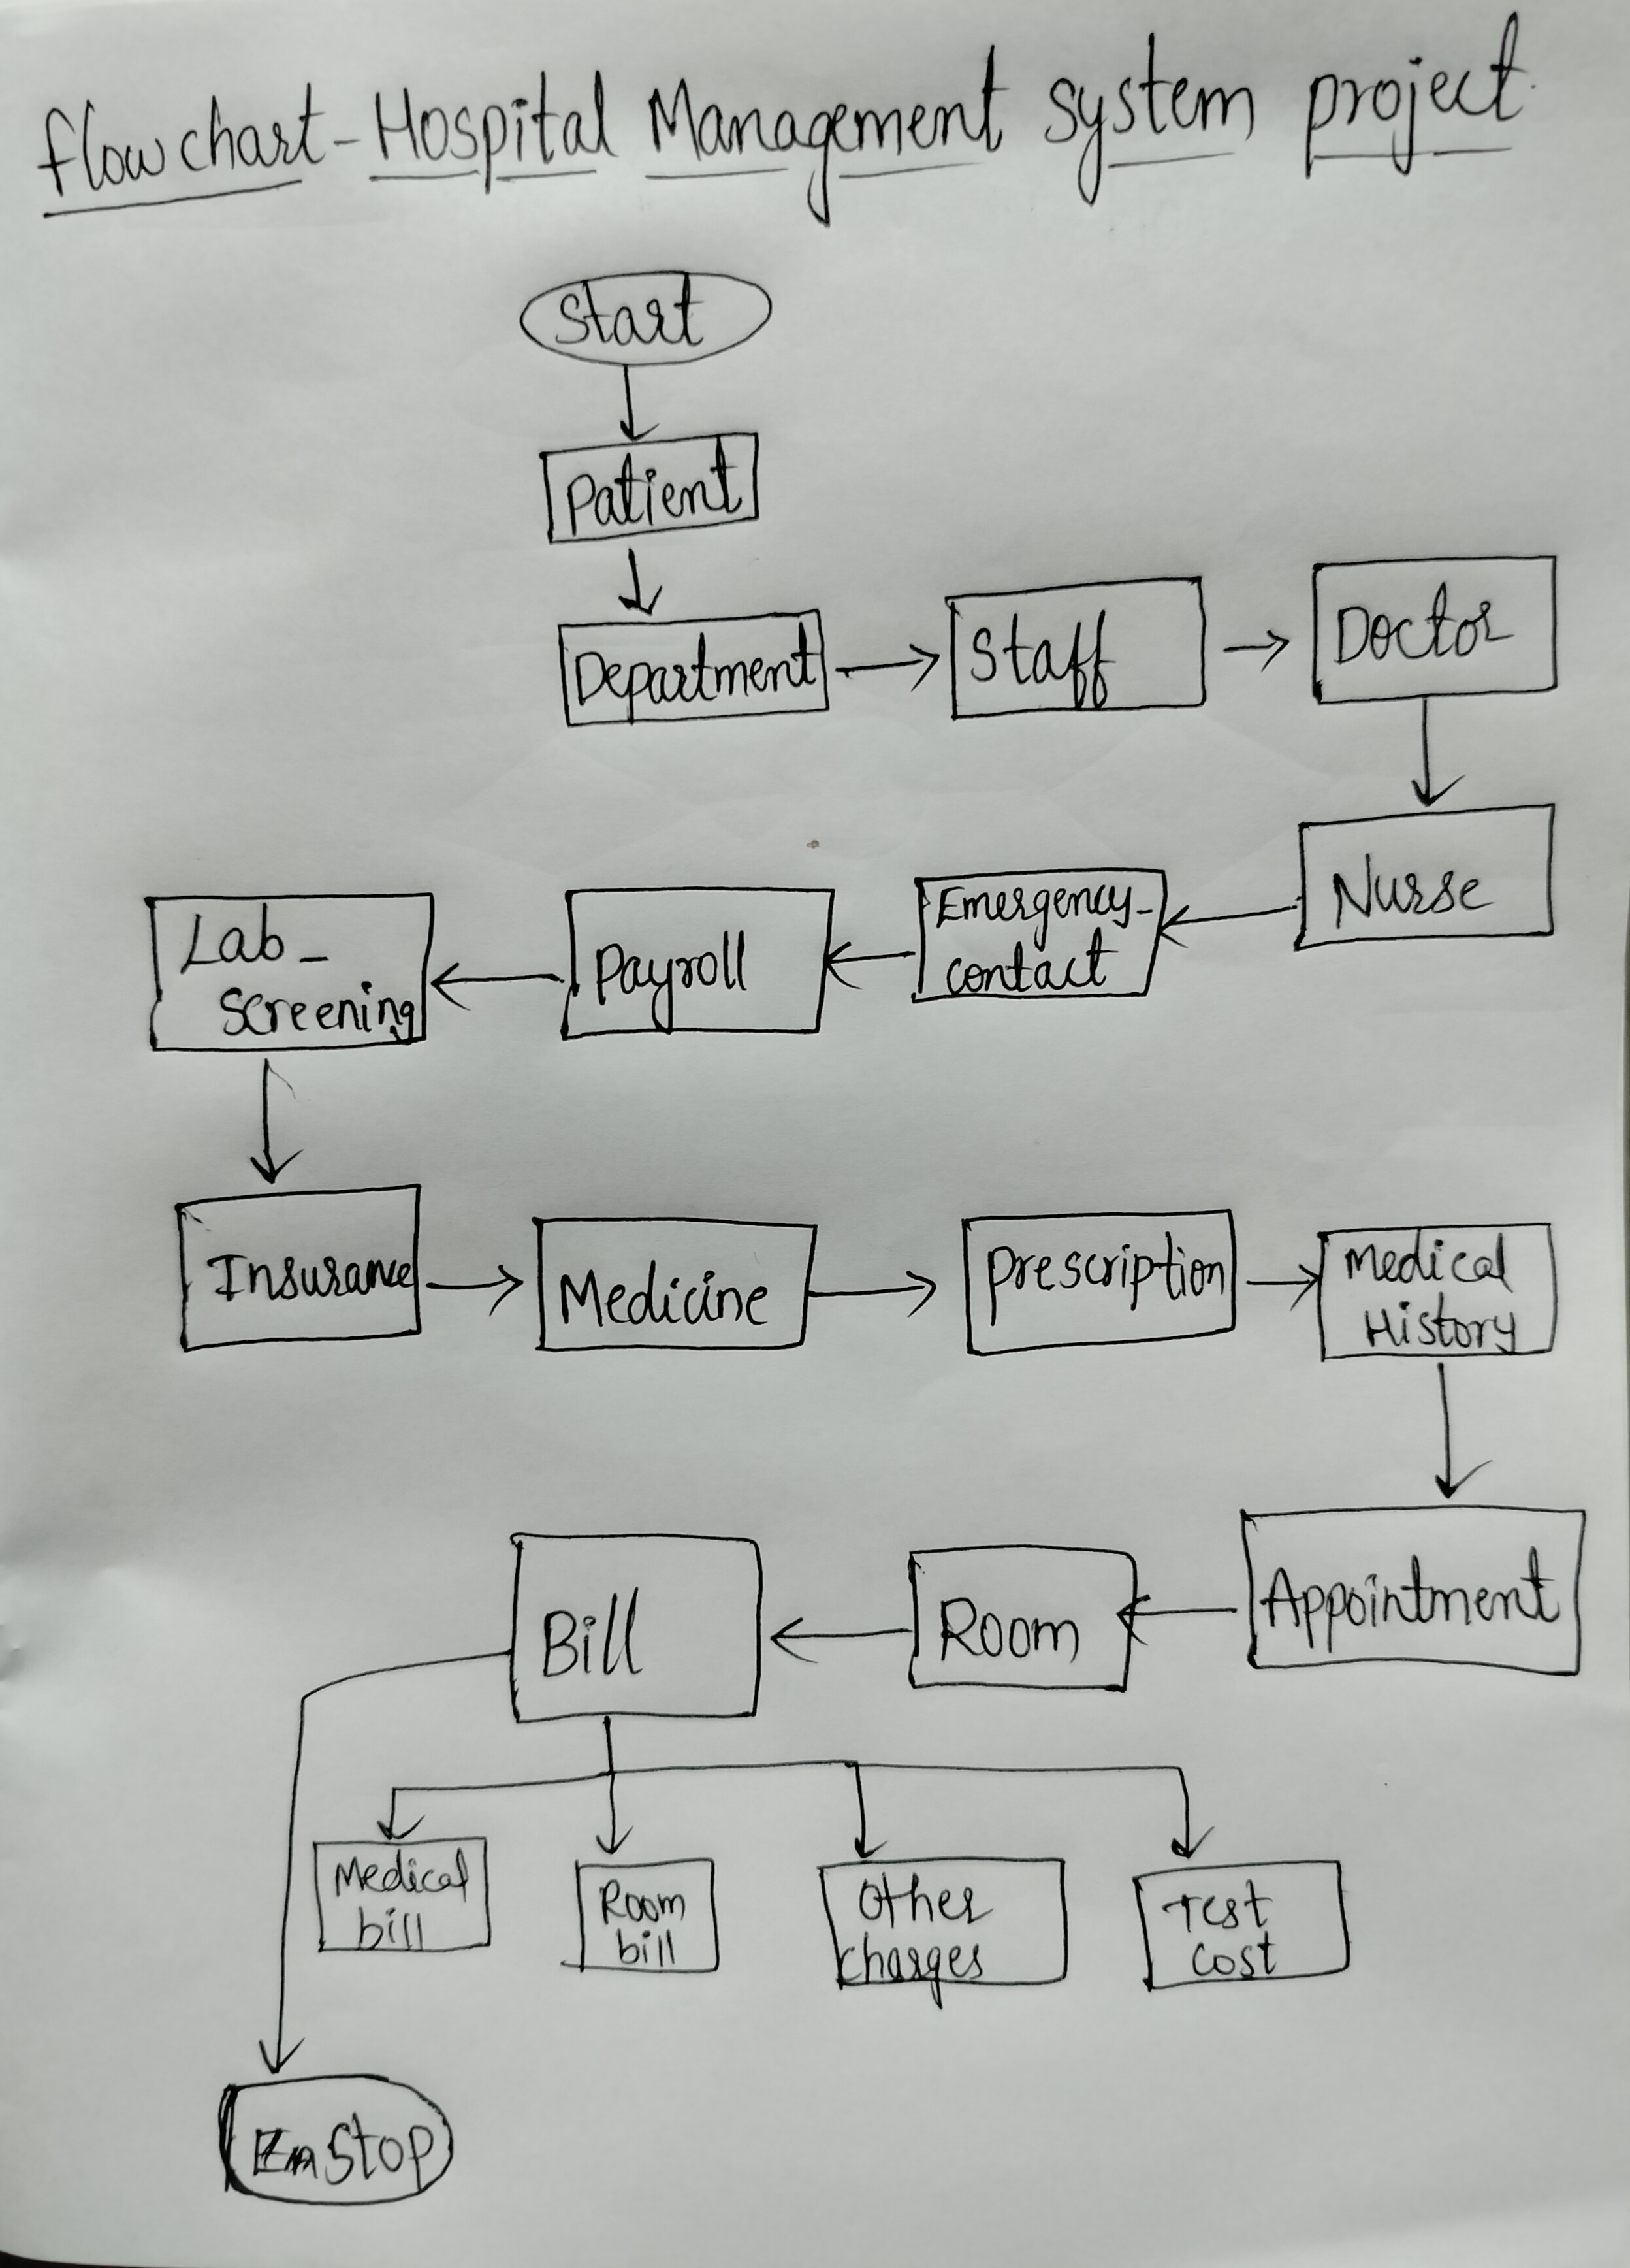 flow chart - Hospital Management system project
Start
Patient
Department
Staff
Doctor
Nurse
Emergency_
contact
Payroll
Lab_
screening
Insurance
Medicine
prescription
Medical
History
Appointment
Room
Bill
Medical
bill
Room
bill
Other
charges
Test
cost
Stop